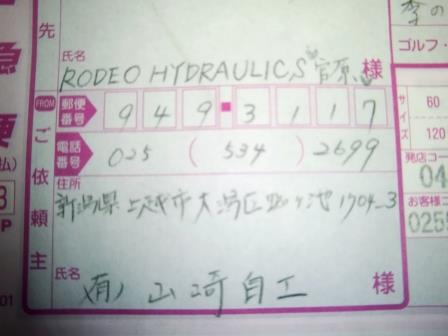 先
氏名
RODEO HYDRAULICS 官原 様
FROM
ご依頼主
郵便番号
949-3117
電話番号
025 ( 534 ) 2699
住所
新潟県上越市大潟区四ツ池1704-3
氏名
(有)山崎自工
様
ゴルフ・
サイズ
60
120
発店コー
04
お客様コ
025
01